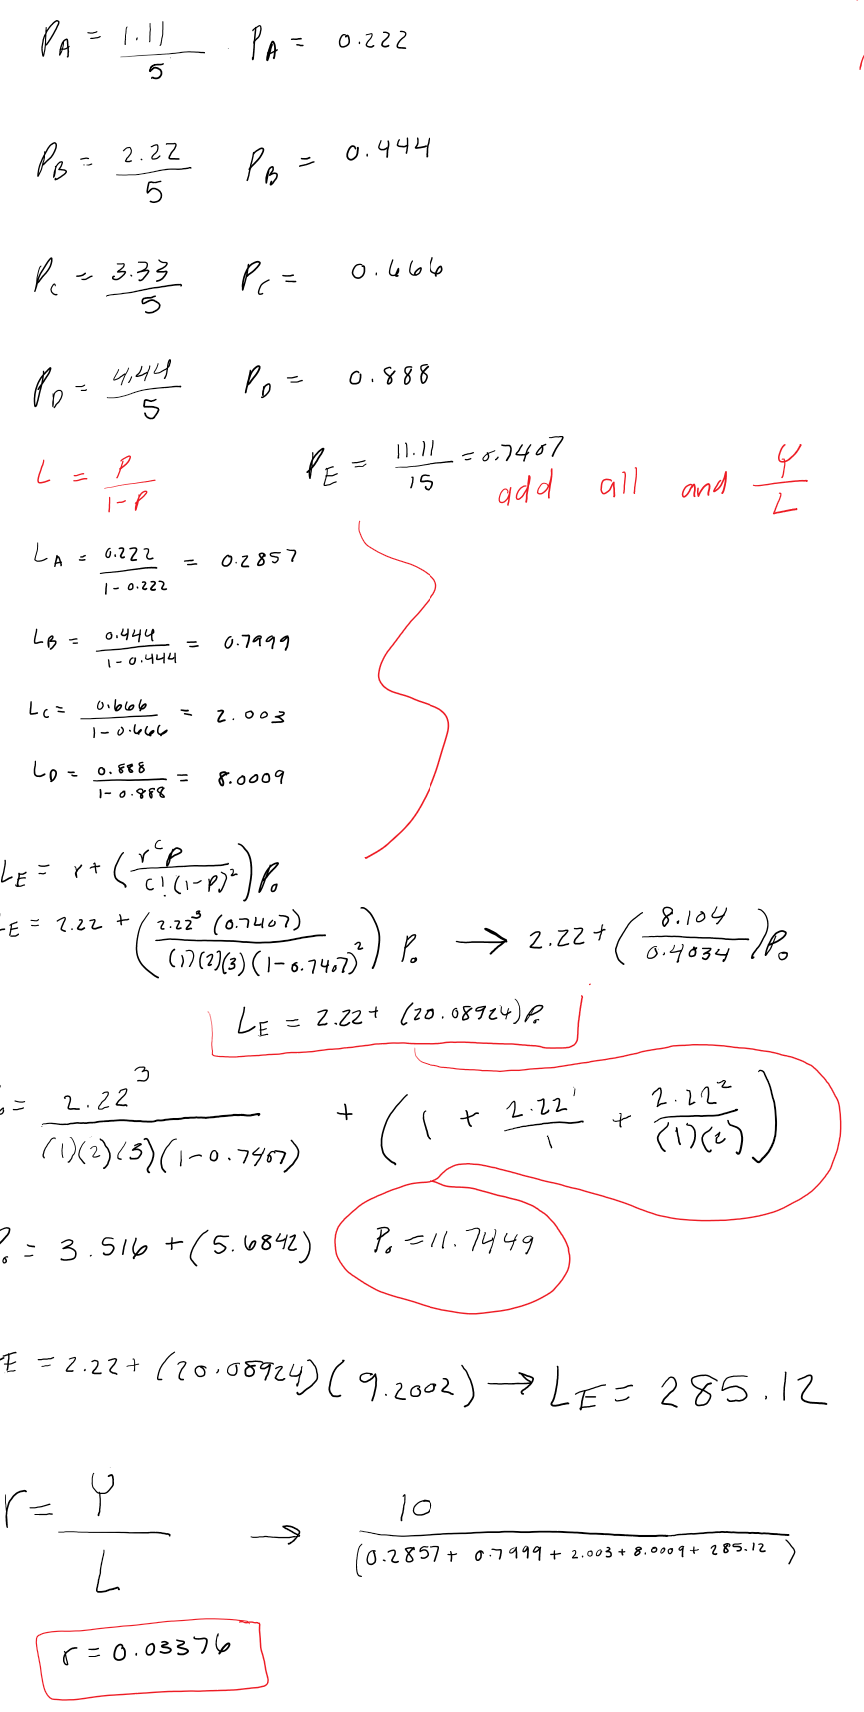 P_A = 1.11/5 P_A = 0.222
P_B = 2.22/5 P_B = 0.444
P_C = 3.33/5 P_C = 0.666
P_D = 4.44/5 P_D = 0.888
L = P/1-P P_E = 11.11/15 = 0.7407
add all and Y/L
L_A = 0.222/1-0.222 = 0.2857
L_B = 0.444/1-0.444 = 0.7999
L_C = 0.666/1-0.666 = 2.003
L_D = 0.888/1-0.888 = 8.0009
L_E = r + (r^c P/c!(1-P)^2) P_0
E = 2.22 + (2.22^3 (0.7407)/(1)(2)(3)(1-0.7407)^2) P_0 → 2.22 + (8.104/0.4034) P_0
L_E = 2.22 + (20.08924) P_0
= 2.22^3/(1)(2)(3)(1-0.7407) + (1 + 2.22^1/1 + 2.22^2/(1)(2))
P_0 = 3.516 + (5.6842) P_0 = 11.7449
E = 2.22 + (20.08924)(9.2002) → L_E = 285.12
r = Y/L → 10/(0.2857 + 0.7999 + 2.003 + 8.0009 + 285.12)
r = 0.03376